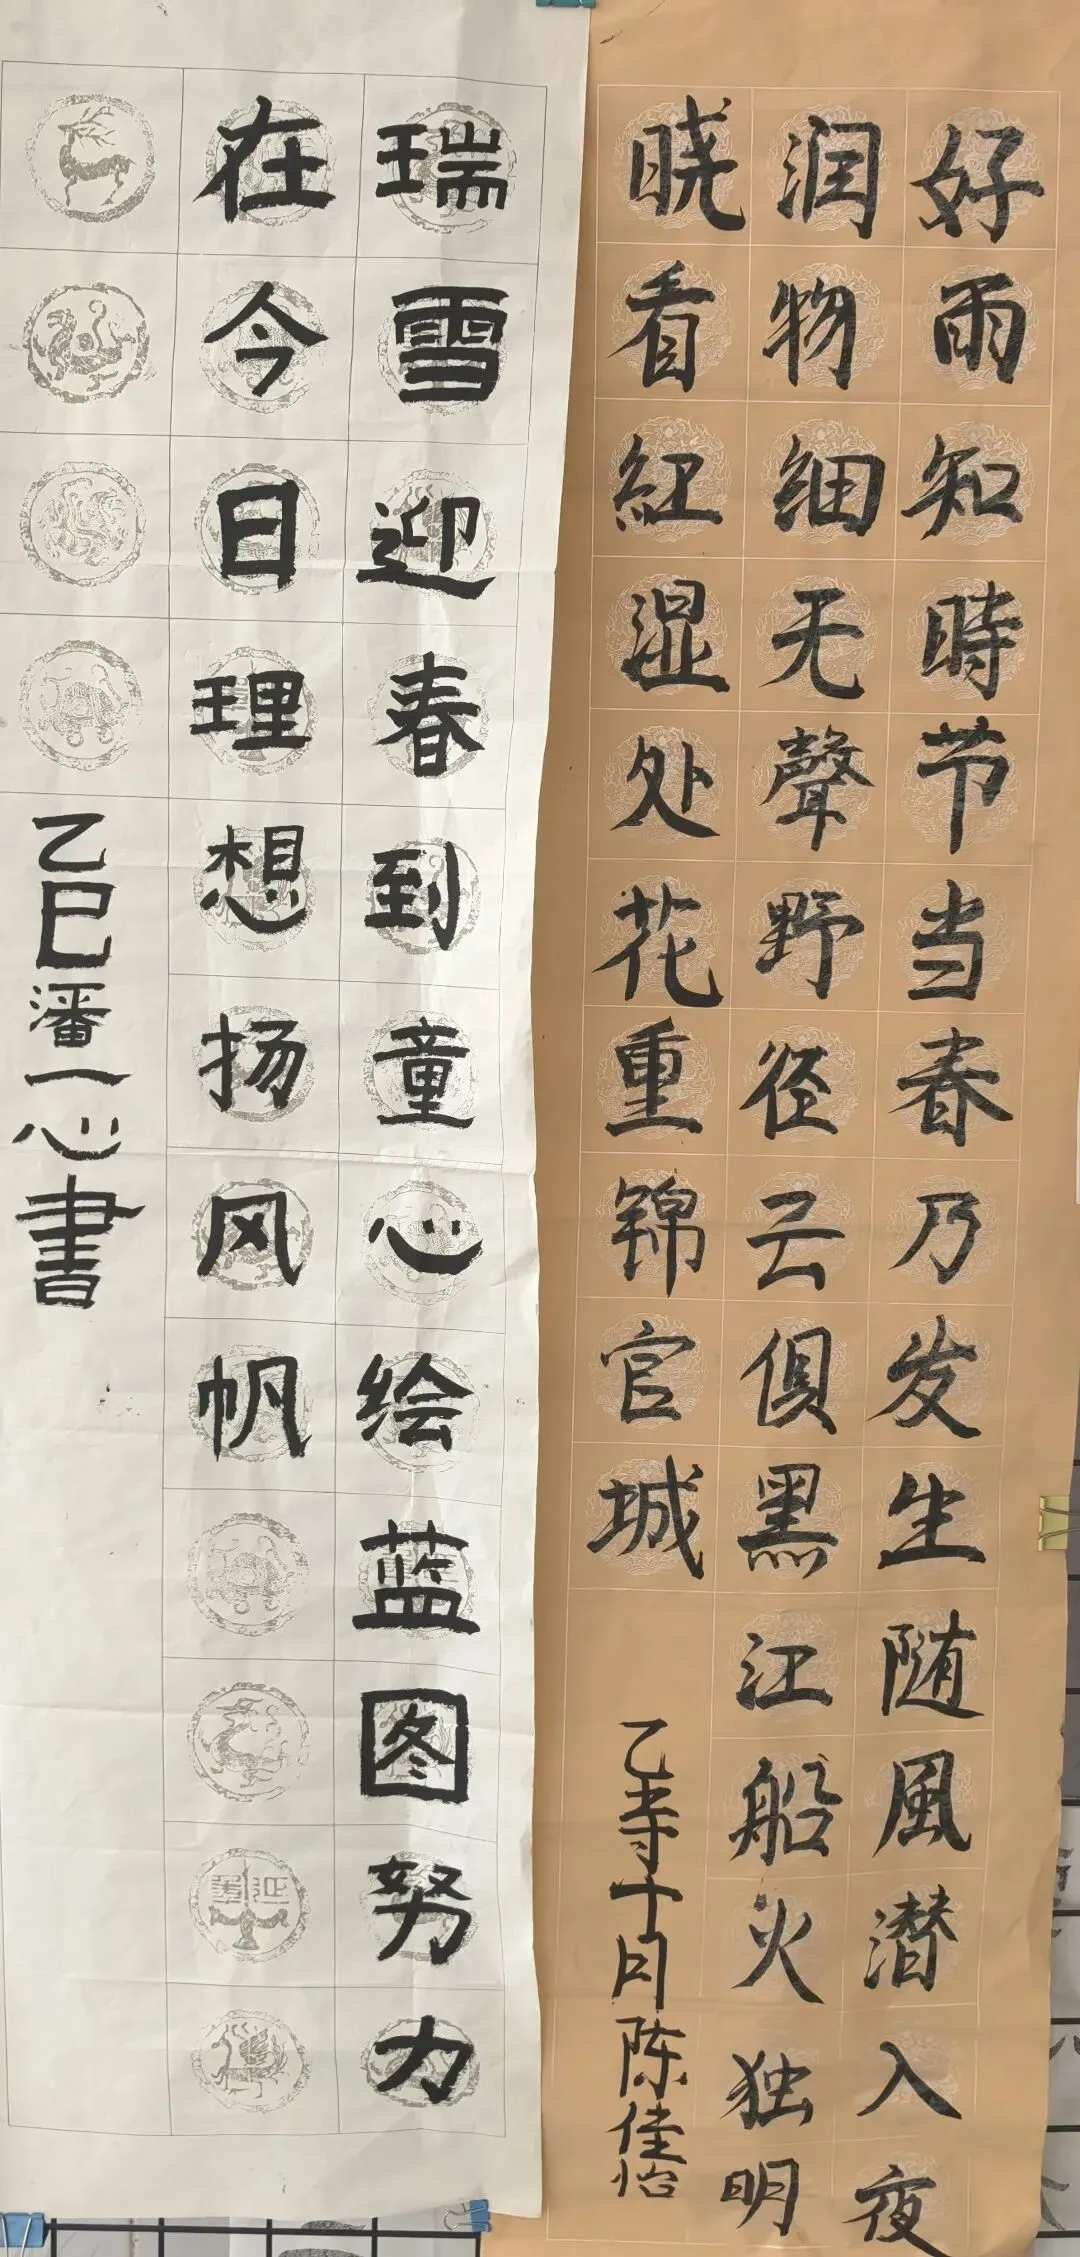 好雨知時节当春乃发生随風潜入夜
润物细无聲野径云俱黑江船火独明
晓看紅湿处花重锦官城
乙巳年十月陈佳怡
瑞雪迎春到童心绘蓝图努力
在今日理想扬风帆
乙巳潘一心書